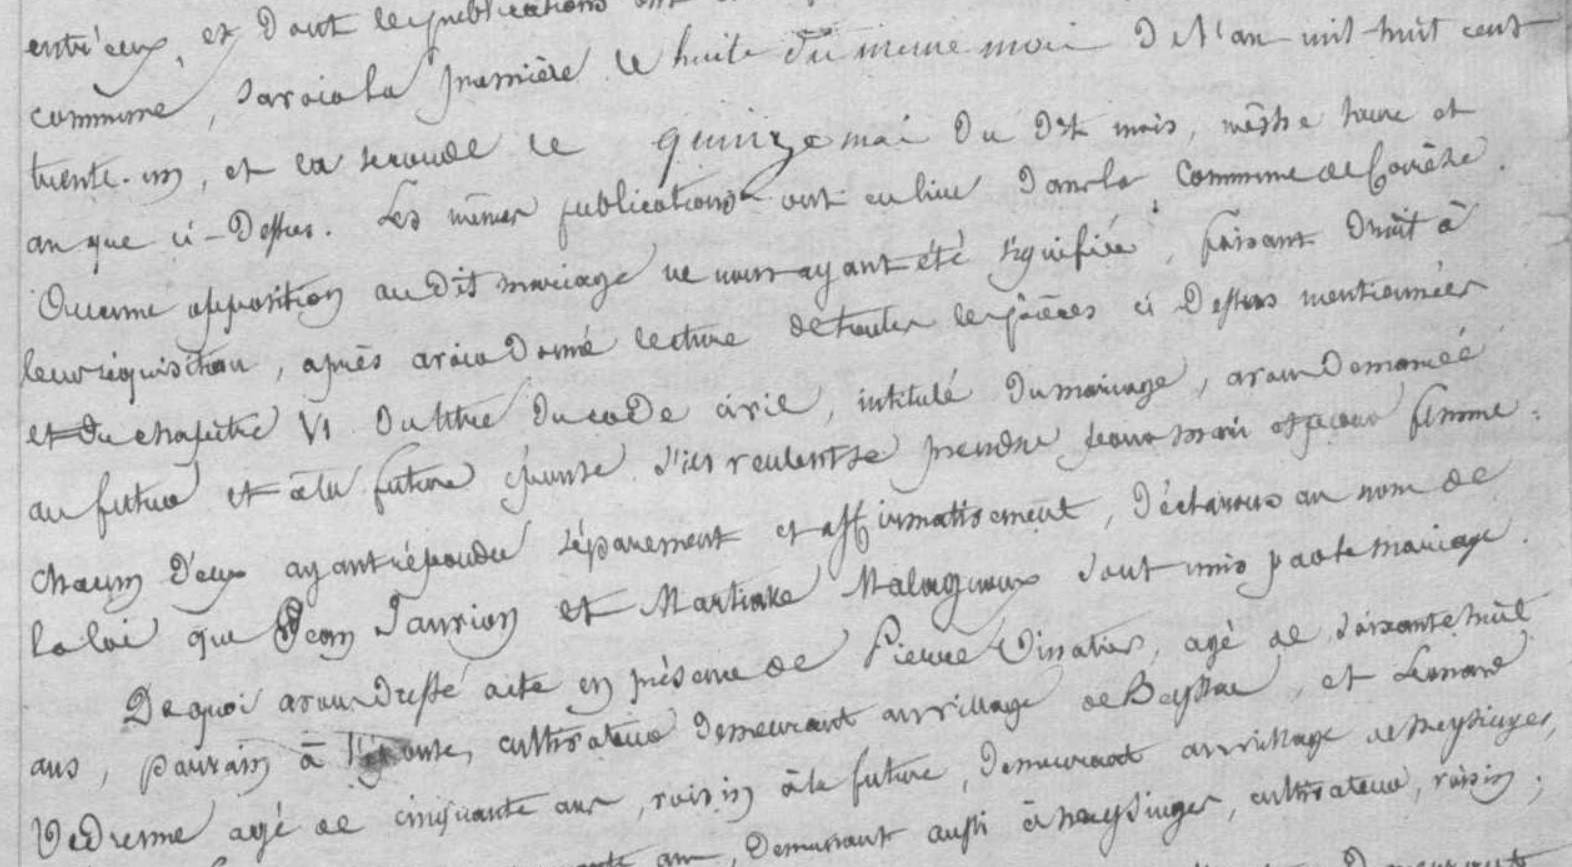 entr'eux, et dont les publications ont
commune, savoir la première le huite du meme moi de l'an mil-huit cent
trente-un, et la seconde le quinze mai du dit mois, même heure et
an que ci-dessus. Les mêmes publications ont eu lieu dans la commune de Corrèze.
Oucune opposition au dit mariage ne nous ayant été signifiée, faisant droit à
leur réquisition, après avoir donné lecture de toutes les pièces ci dessus mentionnées
et du chapitre VI du titre du code civil, intitulé du mariage, avons demandé
au futur et à la future épouse s'ils veulent se prendre pour mari et pour femme:
chacun d'eux ayant répondu séparement et affirmativement, déclarons au nom de
la loi que Jean Taurion et Martiale Malagnoux sont unis par le mariage.
De quoi avons dressé acte en présence de Pierre Vinatier, agé de soixante huit
ans, parrain à l'épouse, cultivateur demeurant au village de Beyssac, et Leonard
Vedrenne agé de cinquante ans, voisin à la future, demeurant au village de Meysinges,
ans, demeurant aussi à meysinges, cultivateur, voisin;